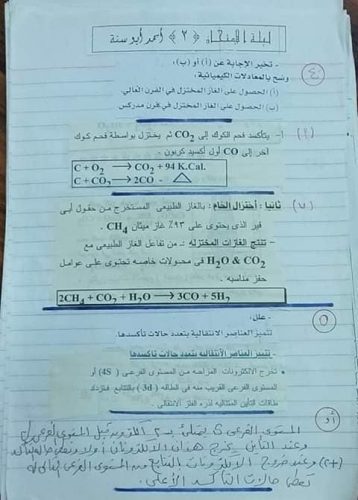 ليلة الامتحان (٢) أحمد أبو سنة
- تخير الإجابة عن (أ) أو (ب):
وضح بالمعادلات الكيميائية:
(أ) الحصول على الغاز المختزل في الفرن العالي.
(ب) الحصول على الغاز المختزل في فرن مدركس
٤
(٤) أ- يتأكسد فحم الكوك إلى CO2 ثم يختزل بواسطة فحم كوك
آخر إلى CO أول أكسيد كربون.
C + O2 → CO2 + 94 K.Cal.
C + CO2 → 2CO - △
(٧) ثانيا: أختزال الخام: بالغاز الطبيعي المستخرج من حقول أبى
قير الذى يحتوى على ٩٣٪ غاز ميثان CH4.
- تنتج الغازات المختزله :ـ من تفاعل الغاز الطبيعى مع
H2O & CO2 فى محولات خاصه تحتوى على عوامل
حفز مناسبه.
2CH4 + CO2 + H2O → 3CO + 5H2
٥
- علل:
تتميز العناصر الانتقالية بتعدد حالات تأكسدها.
- تتميز العناصر الأنتقاليه بتعدد حالات تأكسدها
تخرج الالكترونات المزاحه من المستوى الفرعى (4S) أو
المستوى الفرعى القريب منه فى الطاقه (3d) بالتتابع فتزداد
طاقات التأين المتتاليه لذره الفلز الأنتقالى.
أو
المستوى الفرعى S يمتلئ بـ ٢ الكترون قبل المستوى الفرعى d
وعند التأين يخرج هذان الالكترونان أولا وتعطى حالة التأكسد
(+2) وعند خروج الالكترونات التتابع من المستوى الفرعى التالى له
تعطى حالات التأكسد الأعلى.